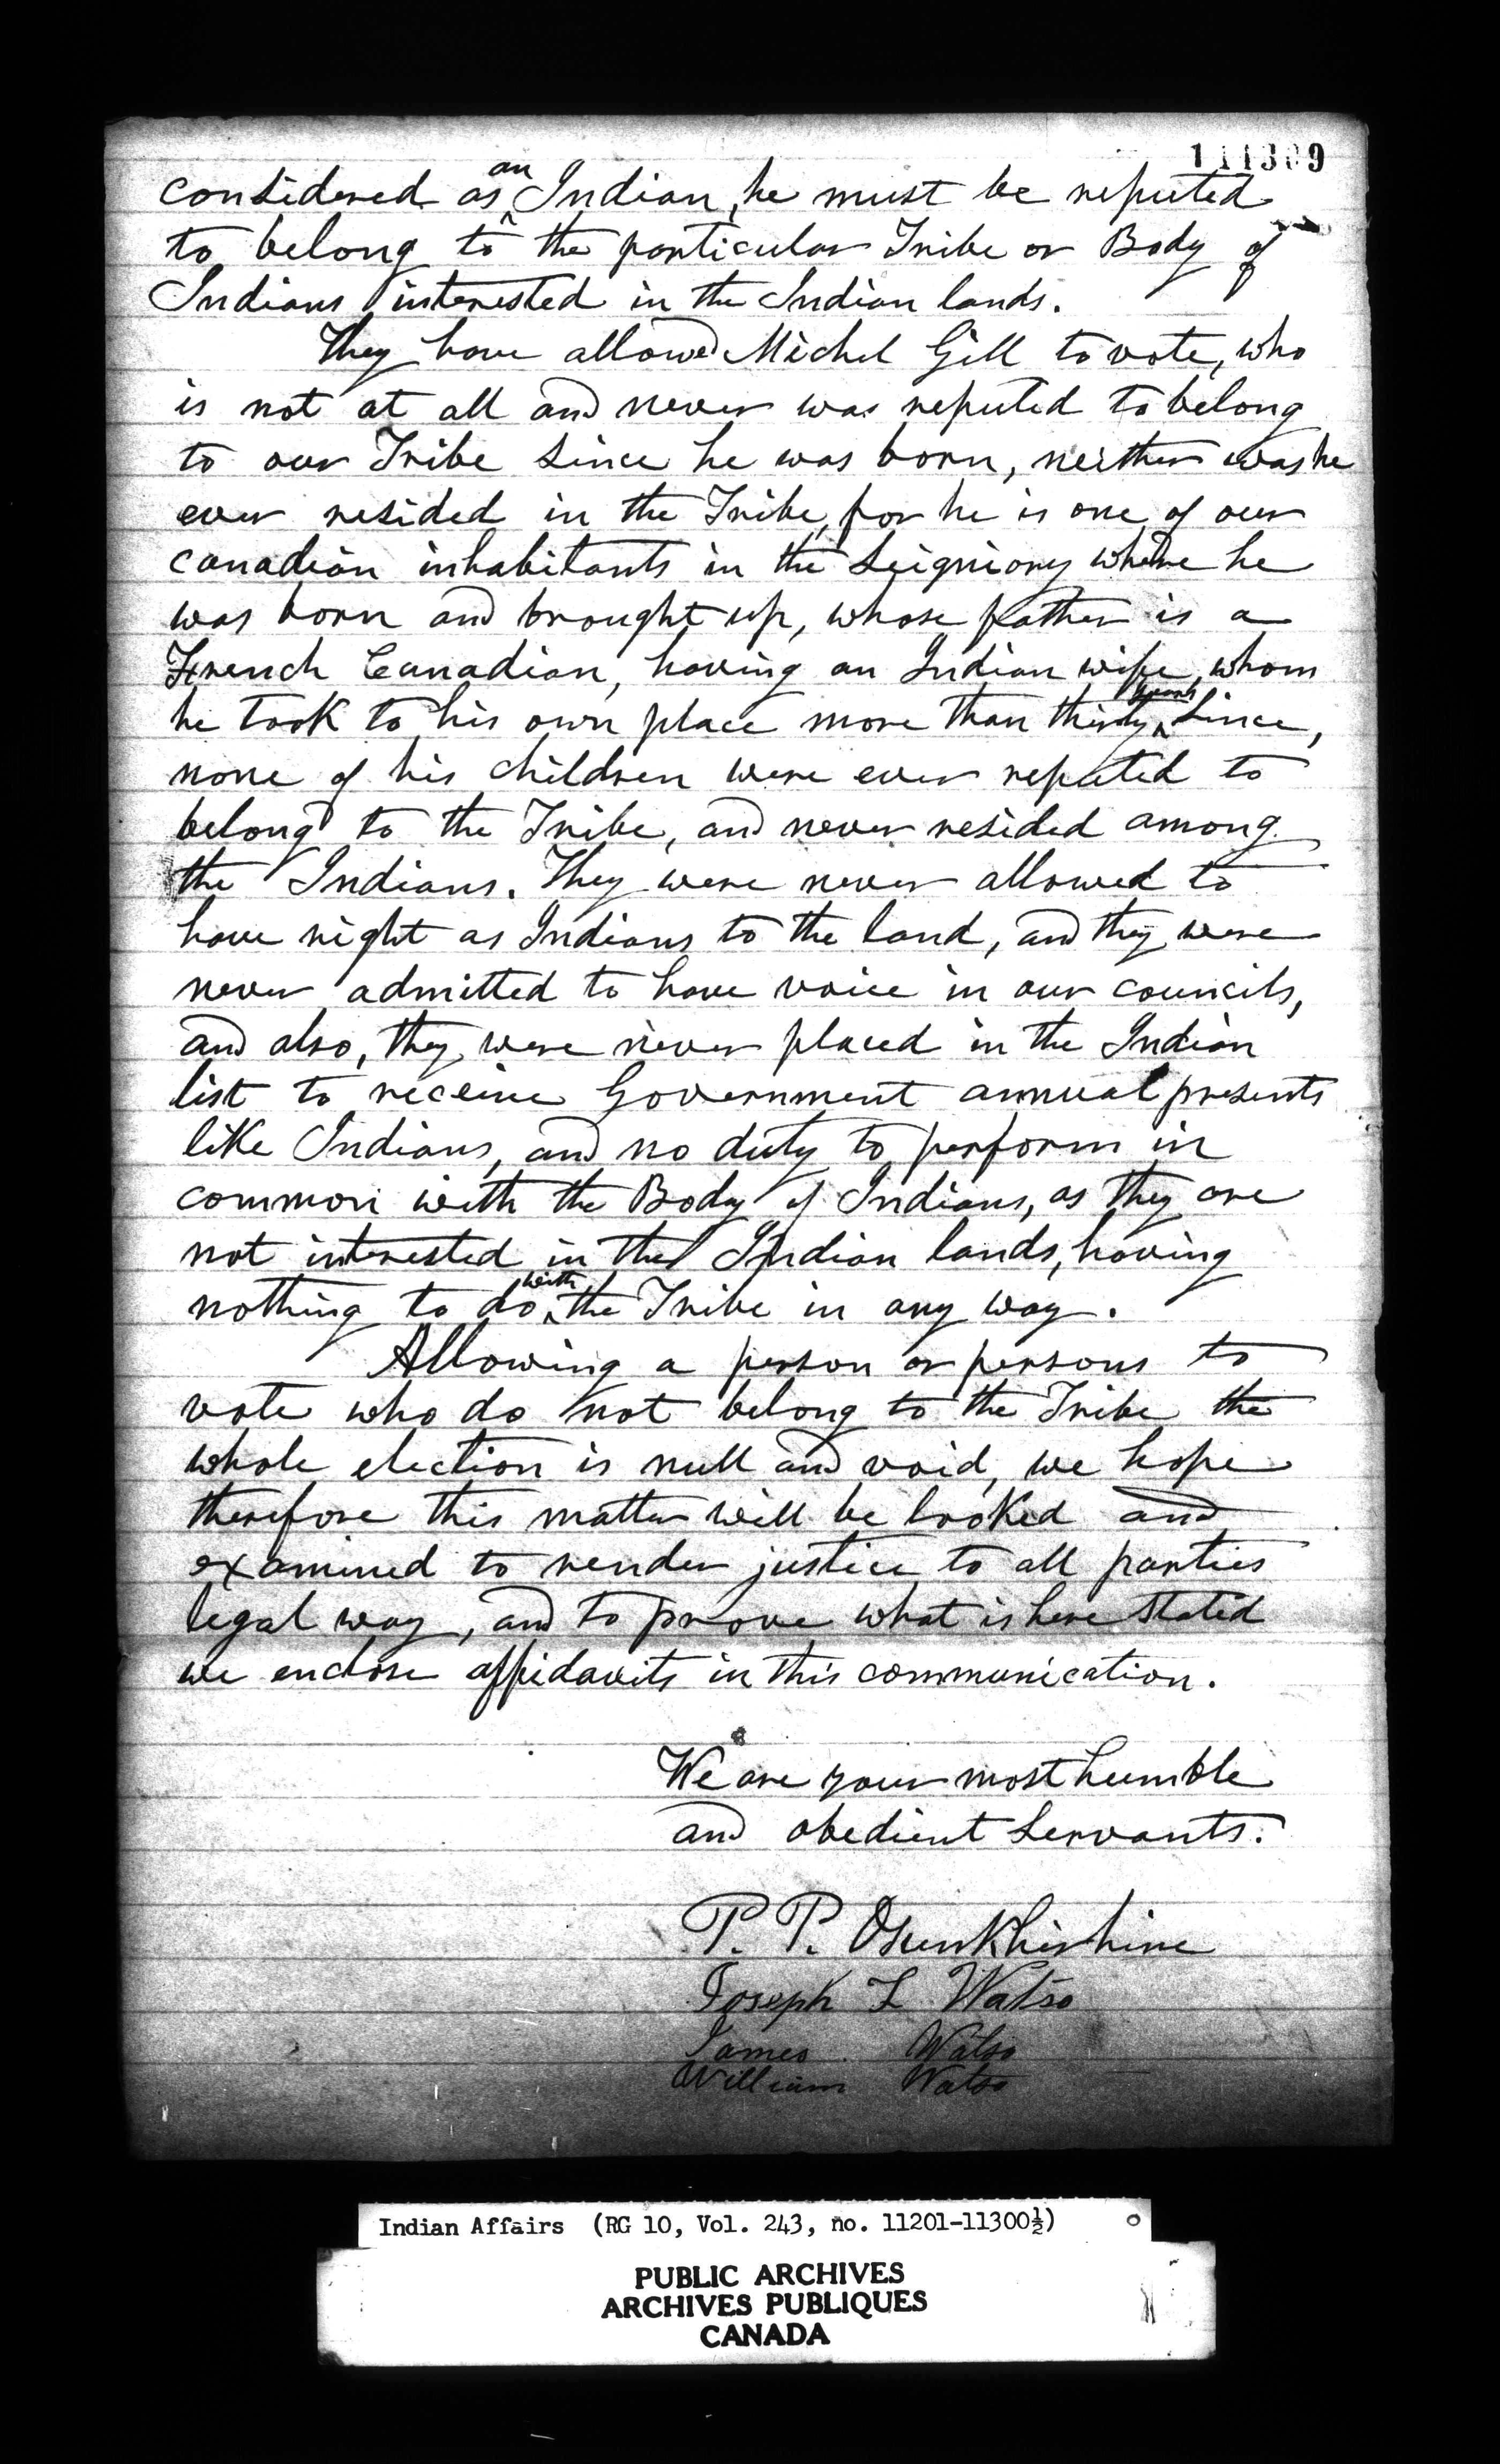 111309
considered as an Indian, he must be reputed
to belong to the particular Tribe or Body of
Indians interested in the Indian lands.
They have allowed Michel Gill to vote, who
is not at all and never was reputed to belong
to our Tribe since he was born, neither was he
ever resided in the Tribe, for he is one of our
canadian inhabitants in the Seigniory where he
was born and brought up, whose father is a
French Canadian, having an Indian wife, whom
he took to his own place more than thirty years since,
none of his children were ever reputed to
belong to the Tribe, and never resided among
the Indians. They were never allowed to
have right as Indians to the land, and they were
never admitted to have voice in our councils,
and also, they were never placed in the Indian
list to receive Government annual presents
like Indians, and no duty to perform in
common with the Body of Indians, as they are
not interested in the Indian lands, having
nothing to do with the Tribe in any way.
Allowing a person or persons to
vote who do not belong to the Tribe the
whole election is null and void, we hope
therefore this matter will be looked and
examined to render justice to all parties
legal way, and to prove what is here stated
we enclose affidavits in this communication.
We are your most humble
and obedient Servants.
P. P. Osunkhirhine
Joseph L Watso
James Watso
William Watso
Indian Affairs (RG 10, Vol. 243, no. 11201-11300½)
PUBLIC ARCHIVES
ARCHIVES PUBLIQUES
CANADA